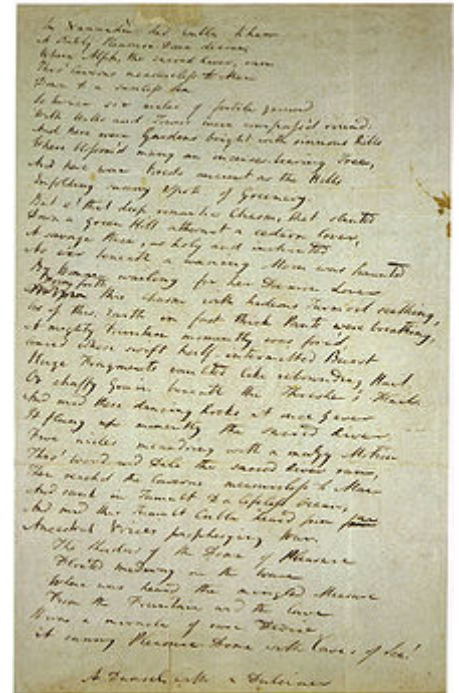 In Xannadù did Cubla Khan
A stately Pleasure Dome decree;
Where Alph, the sacred River, ran
Thro' Caverns measureless to Man
Down to a sunless Sea.
So twice six miles of fertile ground
With Walls and Towers were compass'd round:
And here were Gardens bright with sinuous Rills
Where blossom'd many an incense-bearing Tree,
And here were Forests ancient as the Hills
Enfolding sunny Spots of Greenery.
But o! that deep romantic Chasm, that slanted
Down a green Hill athwart a cedarn Cover,
A savage Place, as holy and inchanted
As e'er beneath a waning Moon was haunted
By Woman wailing for her Dæmon Lover:
From forth this Chasm with hideous Turmoil seething,
As if this Earth in fast thick Pants were breathing,
A mighty Fountain momently was forc'd,
Amid whose swift half-intermitted Burst
Huge Fragments vaulted like rebounding Hail,
Or chaffy Grain beneath the Thresher's Flail:
And mid these dancing Rocks at once & ever
It flung up momently the sacred River.
Five miles meandering with a mazy Motion
Thro' Wood and Dale the sacred River ran,
Then reach'd the Caverns measureless to Man
And sank in Tumult to a lifeless Ocean;
And mid this Tumult Cubla heard from far
Ancestral Voices prophesying War.
The Shadow of the Dome of Pleasure
Floated midway on the Wave
Where was heard the mingled Measure
From the Fountain and the Cave.
It was a miracle of rare Device,
A sunny Pleasure-Dome with Caves of Ice!
A Damsel with a Dulcimer